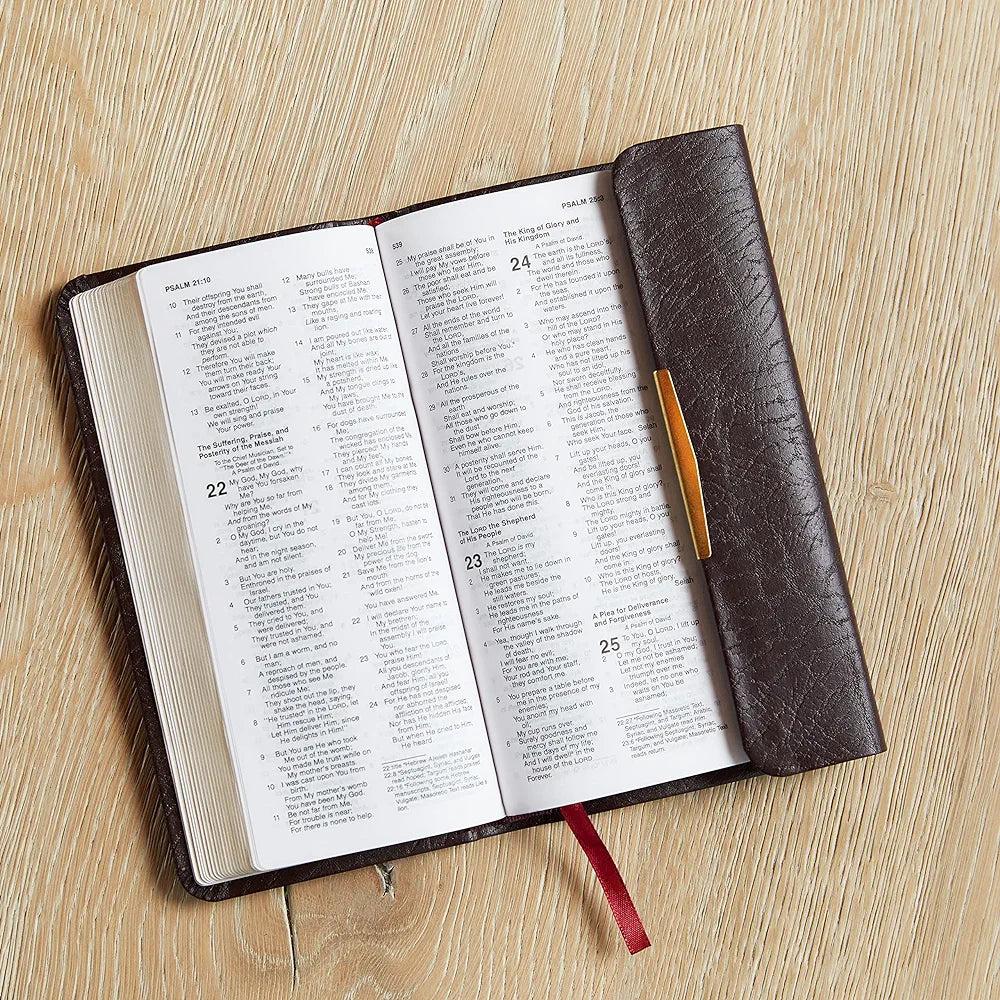 PSALM 21:10
538
10 Their offspring You shall
destroy from the earth,
And their descendants from
among the sons of men.
11 For they intended evil
against You;
They devised a plot which
they are not able to
perform.
12 Therefore You will make
them turn their back;
You will make ready Your
arrows on Your string
toward their faces.
13 Be exalted, O LORD, in Your
own strength!
We will sing and praise
Your power.
The Suffering, Praise, and
Posterity of the Messiah
To the Chief Musician. Set to
"The Deer of the Dawn."
A Psalm of David.
22 My God, My God, why
have You forsaken
Me?
Why are You so far from
helping Me,
And from the words of My
groaning?
2 O My God, I cry in the
daytime, but You do not
hear;
And in the night season,
and am not silent.
3 But You are holy,
Enthroned in the praises of
Israel.
4 Our fathers trusted in You;
They trusted, and You
delivered them.
5 They cried to You, and
were delivered;
They trusted in You, and
were not ashamed.
6 But I am a worm, and no
man;
A reproach of men, and
despised by the people.
7 All those who see Me
ridicule Me;
They shoot out the lip, they
shake the head, saying,
8 "He trusted in the LORD, let
Him rescue Him;
Let Him deliver Him, since
He delights in Him!"
9 But You are He who took
Me out of the womb;
You made Me trust while on
My mother's breasts.
10 I was cast upon You from
birth.
From My mother's womb
You have been My God.
11 Be not far from Me,
For trouble is near;
For there is none to help.
12 Many bulls have
surrounded Me;
Strong bulls of Bashan
have encircled Me.
13 They gape at Me with their
mouths,
Like a raging and roaring
lion.
14 I am poured out like water,
And all My bones are out of
joint;
My heart is like wax;
It has melted within Me.
15 My strength is dried up like
a potsherd,
And My tongue clings to
My jaws;
You have brought Me to the
dust of death.
16 For dogs have surrounded
Me;
The congregation of the
wicked has enclosed Me.
They pierced My hands
and My feet;
17 I can count all My bones.
They look and stare at Me.
18 They divide My garments
among them,
And for My clothing they
cast lots.
19 But You, O LORD, do not be
far from Me;
O My Strength, hasten to
help Me!
20 Deliver Me from the sword,
My precious life from the
power of the dog.
21 Save Me from the lion's
mouth
And from the horns of the
wild oxen!
You have answered Me.
22 I will declare Your name to
My brethren;
In the midst of the
assembly I will praise
You.
23 You who fear the LORD,
praise Him!
All you descendants of
Jacob, glorify Him,
And fear Him, all you
offspring of Israel!
24 For He has not despised
nor abhorred the
affliction of the afflicted;
Nor has He hidden His face
from Him;
But when He cried to Him,
He heard.
22:title "Hebrew Aijeleth Hashahar
22:8 "Septuagint, Syriac, and Vulgate
read hoped, Targum reads praised
22:16 "Following some Hebrew
manuscripts, Septuagint, Syriac,
Vulgate; Masoretic Text reads Like a
lion.
539
PSALM 25:3
25 My praise shall be of You in
the great assembly;
I will pay My vows before
those who fear Him.
26 The poor shall eat and be
satisfied;
Those who seek Him will
praise the LORD.
Let your heart live forever!
27 All the ends of the world
Shall remember and turn to
the LORD,
And all the families of the
nations
Shall worship before You.
28 For the kingdom is the
LORD's,
And He rules over the
nations.
29 All the prosperous of the
earth
Shall eat and worship;
All those who go down to
the dust
Shall bow before Him,
Even he who cannot keep
himself alive.
30 A posterity shall serve Him.
It will be recounted of the
Lord to the next
generation,
31 They will come and declare
His righteousness to a
people who will be born,
That He has done this.
The LORD the Shepherd
of His People
A Psalm of David.
23 The LORD is my
shepherd;
I shall not want.
2 He makes me to lie down in
green pastures;
He leads me beside the
still waters.
3 He restores my soul;
He leads me in the paths of
righteousness
For His name's sake.
4 Yea, though I walk through
the valley of the shadow
of death,
I will fear no evil;
For You are with me;
Your rod and Your staff,
they comfort me.
5 You prepare a table before
me in the presence of my
enemies;
You anoint my head with
oil;
My cup runs over.
6 Surely goodness and
mercy shall follow me
All the days of my life;
And I will dwell in the
house of the LORD
Forever.
The King of Glory and
His Kingdom
A Psalm of David.
24 The earth is the LORD's,
and all its fullness,
The world and those who
dwell therein.
2 For He has founded it upon
the seas,
And established it upon the
waters.
3 Who may ascend into the
hill of the LORD?
Or who may stand in His
holy place?
4 He who has clean hands
and a pure heart,
Who has not lifted up his
soul to an idol,
Nor sworn deceitfully.
5 He shall receive blessing
from the LORD,
And righteousness from the
God of his salvation.
6 This is Jacob, the
generation of those who
seek Him,
Who seek Your face. Selah
7 Lift up your heads, O you
gates!
And be lifted up, you
everlasting doors!
And the King of glory shall
come in.
8 Who is this King of glory?
The LORD strong and
mighty,
The LORD mighty in battle.
9 Lift up your heads, O you
gates!
Lift up, you everlasting
doors!
And the King of glory shall
come in.
10 Who is this King of glory?
The LORD of hosts,
He is the King of glory. Selah
A Plea for Deliverance
and Forgiveness
A Psalm of David.
25 To You, O LORD, I lift up
my soul.
2 O my God, I trust in You;
Let me not be ashamed;
Let not my enemies
triumph over me.
3 Indeed, let no one who
waits on You be
ashamed;
22:27 "Following Masoretic Text,
Septuagint, and Targum; Arabic,
Syriac, and Vulgate read Him
23:6 "Following Septuagint, Syriac,
Targum, and Vulgate; Masoretic Text
reads return.